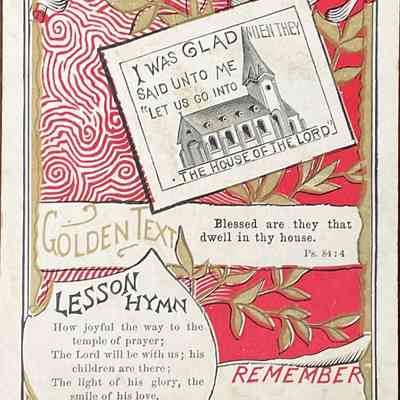 I WAS GLAD WHEN THEY
SAID UNTO ME
"LET US GO INTO
THE HOUSE OF THE LORD"
GOLDEN TEXT
Blessed are they that
dwell in thy house.
Ps. 84:4
LESSON
HYMN
How joyful the way to the
temple of prayer;
The Lord will be with us; his
children are there;
The light of his glory, the
smile of his love,
REMEMBER